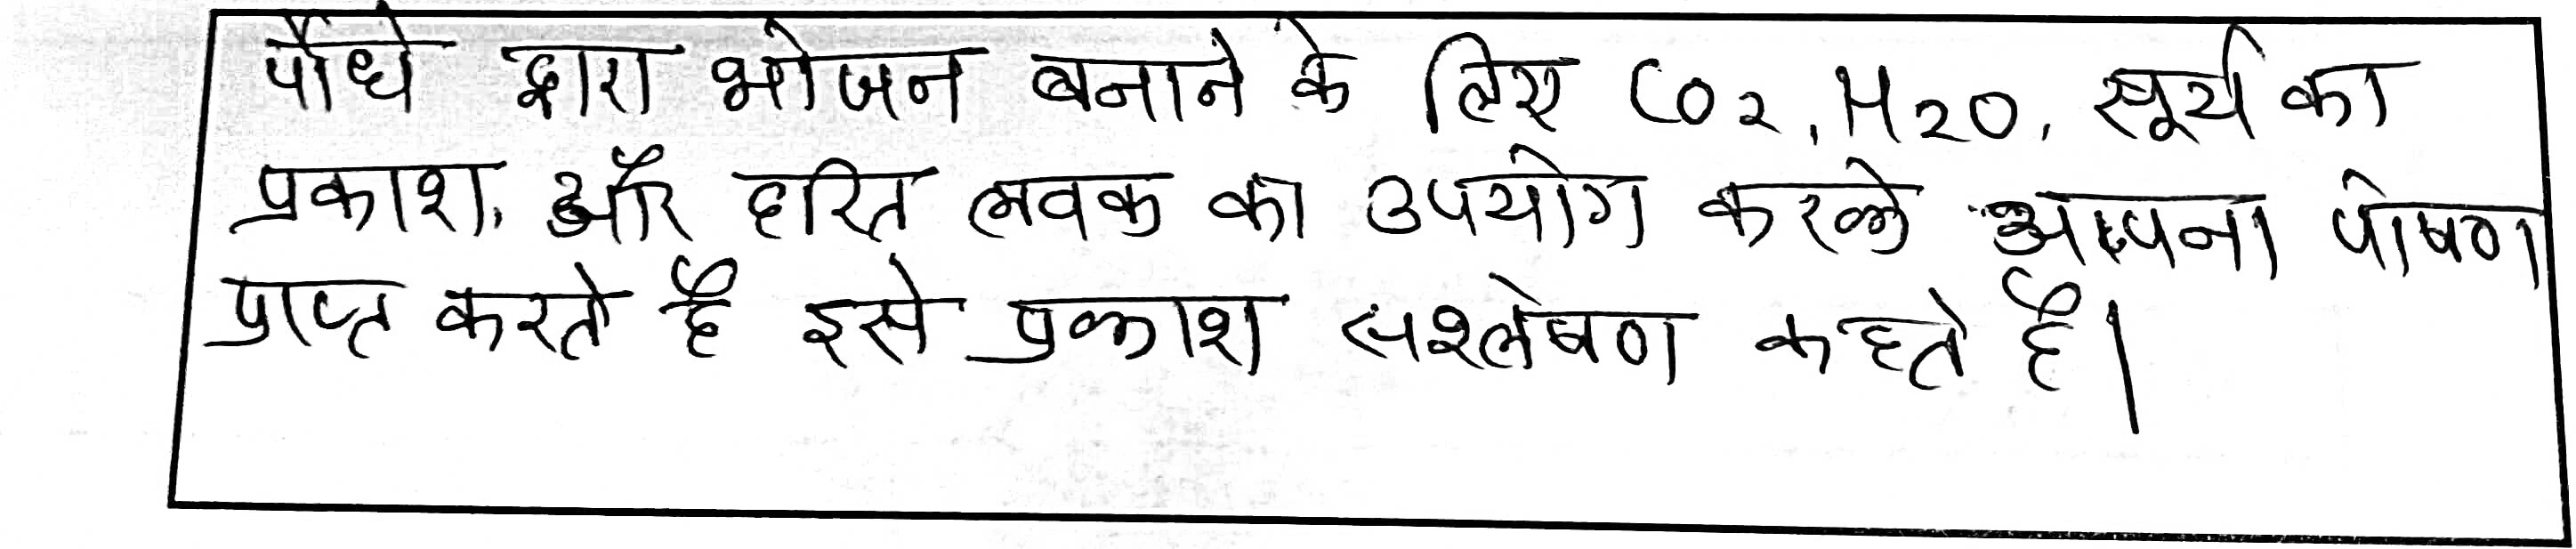 पौधे द्वारा भोजन बनाने के लिए CO2, H2O, सूर्य का
प्रकाश, और हरित लवक का उपयोग करके अपना पोषण
प्राप्त करते है इसे प्रकाश सश्लेषण कहते है।